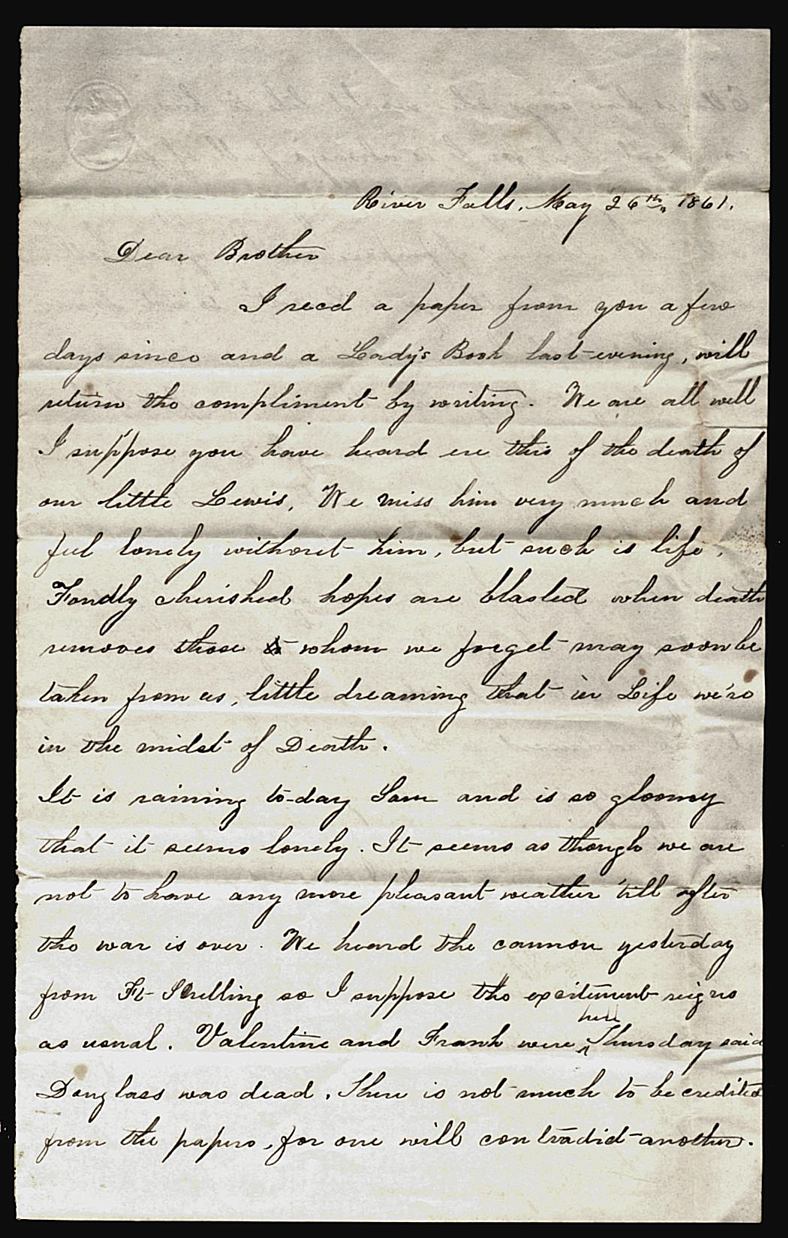 River Falls, May 26th, 1861.
Dear Brother
I recd a paper from you a few
days since and a Lady's Book last evening, will
return the compliment by writing. We are all well
I suppose you have heard ere this of the death of
our little Lewis. We miss him very much and
feel lonely without him, but such is life.
Fondly cherished hopes are blasted when death
removes those whom we forget may soon be
taken from us, little dreaming that in Life we're
in the midst of Death.
It is raining to-day Sam and is so gloomy
that it seems lonely. It seems as though we are
not to have any more pleasant weather till after
the war is over. We heard the cannon yesterday
from Ft Snelling so I suppose the excitement reigns
as usual. Valentine and Frank were here Thursday said
Douglass was dead. There is not much to be credited
from the papers, for one will contradict another.